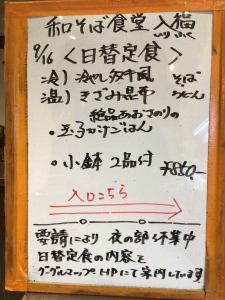 和そば食堂 入福
いりふく
9/16 <日替定食>
冷) 冷やし そば
温) きざみ昆布 うどん
絶品あおさのりの
・玉子かけごはん
・小鉢 2品付 ¥850-
入口こちら
要請により 夜の部 休業中
日替定食の内容を
グーグルマップ HPにて案内しています